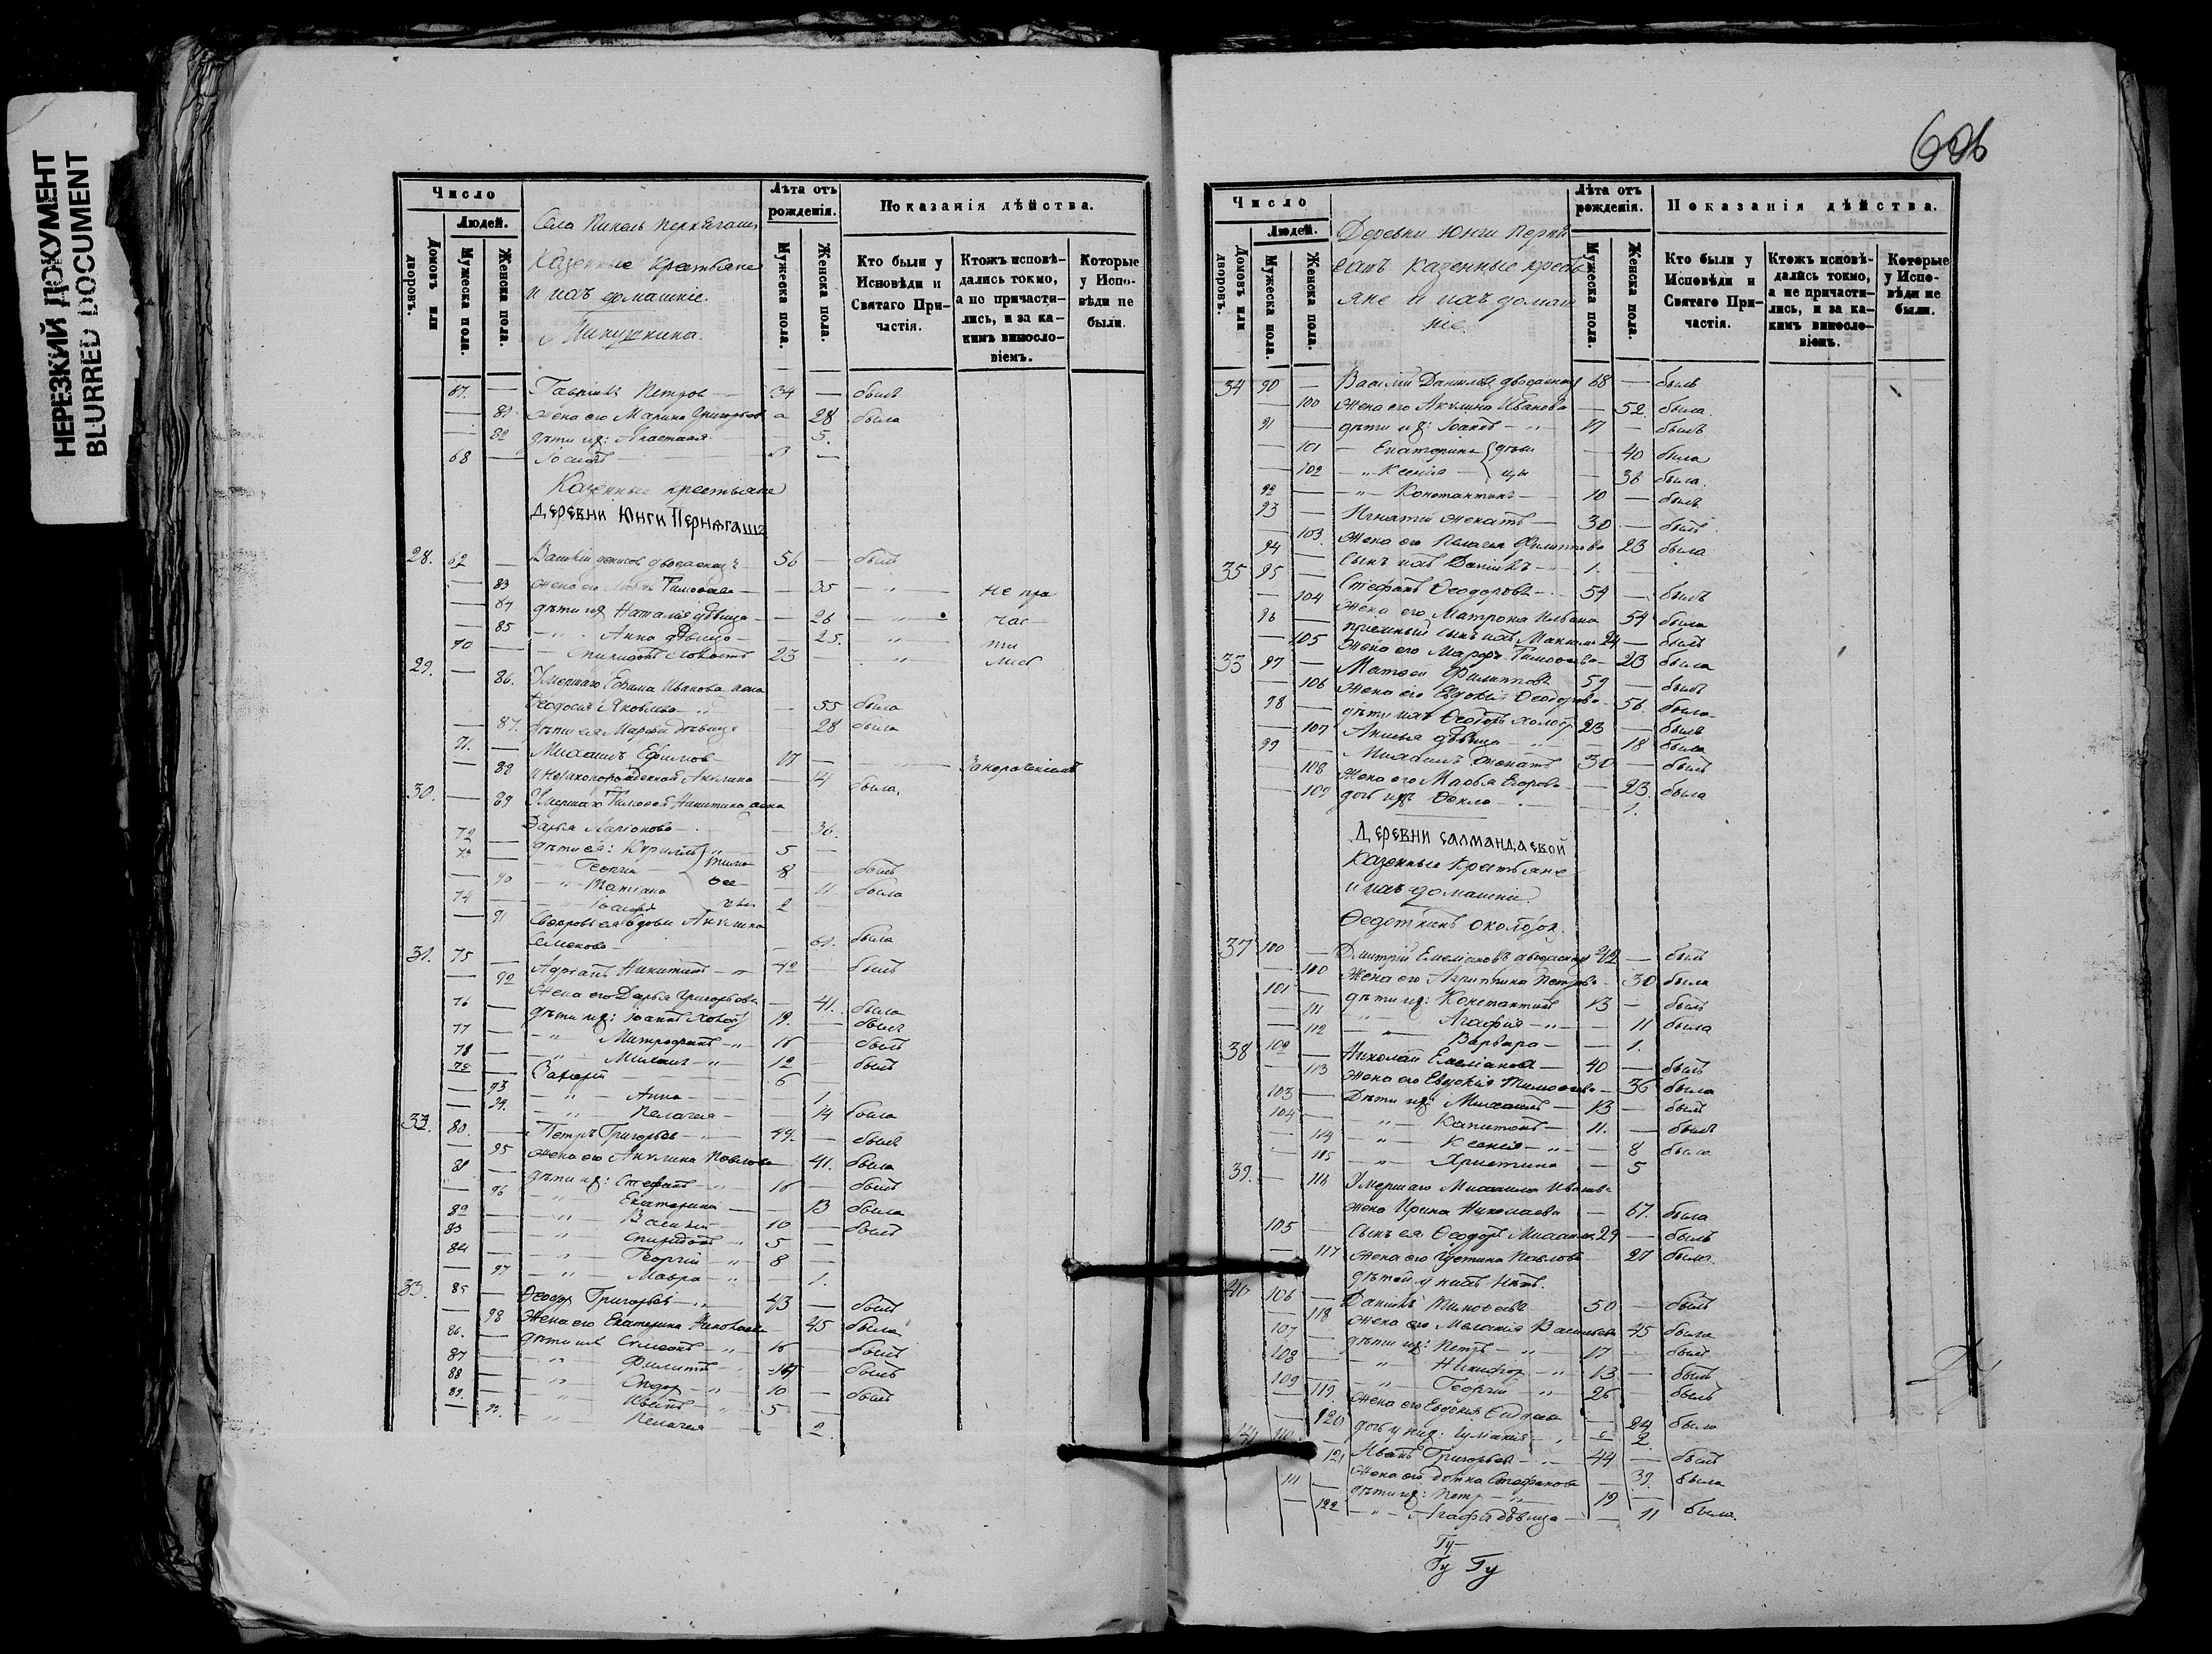 НЕРЕЗКИЙ ДОКУМЕНТ
BLURRED DOCUMENT
Число
Людей.
Домовъ или дворовъ.
Мужеска пола.
Женска пола.
Села
Казенные крестьяне
и ихъ домашніе.
Лѣта отъ рожденія.
Мужеска пола.
Женска пола.
Показанія дѣйства.
Кто были у Исповѣди и Святаго Причастія.
Ктожъ исповѣдались токмо, а не причастились, и за какимъ винословіемъ.
Которые у Исповѣди не были.
67. — Гавріилъ Петров 34 — былъ
— 81. жена его Марина Григорьева 28 была
— 82 дѣти их: Анастасія — 5.
68 — Іосифъ 3 —
Казенные крестьяне
Деревни Юнги Пернягашъ
28. 69 — 56 — былъ
— 83 жена его Тимоѳеева — 35 — " — не при
— 84 дѣти их Наталія дѣвица — 26 — " — час
— 85 — " — Анна дѣвица — 25. — " — ти
70 — Спиридонъ холостъ 23 — " — лис
29. — 86. Умершаго Ефима Иванова жена
Ѳеодосія Яковлева — 55 была
— 87. дѣти ея Марѳа дѣвица — 28 была
71. — Михаилъ Ефимов 17 — — " —
— 88 Акулина — 4 была
30. — 89 Умершаго Тимоѳея Никитина жена
Дарья Ларіонова — 36.
72 — дѣти ея: Кириллъ 5 —
73 — " Георгій 8 — былъ
— 90 — " Татіана — 11 была
74 — " Іосифъ 2
— 91 Свекровь ея вдова Акулина
Семенова — 61. была
31. 75 — Адріанъ Никитинъ — 42 — былъ
— 92 Жена его Дарья Григорьева — 41. была
76 — дѣти их: Іоаннъ холостъ 19. — былъ
77 — " — Митрофанъ — " 16 — былъ
78 — " — Михаилъ — " — 12 — былъ
79 — Захарій 6
— 93 — " — Анна — 1.
— 94. — " — Пелагея — 14 была
32. 80. — Петръ Григорьев — " — 44. — былъ
— 95 жена его Акулина Павлова — 41. была
81 — дѣти их: Стефанъ — " — 16 — былъ
— 96 — " — Екатерина — 13 была
82 — " — Василій — 10 — былъ
83 — " — Спиридонъ — " 5 —
84 — " — Георгій — " — 8 —
— 97 — " — Мавра — " — 1.
33. 85 — Ѳеодоръ Григорьев — " — 43 — былъ
— 98 Жена его Екатерина Николаева — 45 была
86. — дѣти их Симеонъ — " 16 — былъ
87 — " — Филиппъ — былъ
88 — " — Сидор — " — 10 — былъ
89. — " — " 5 —
— 99. — " — Пелагея — 2.
Число
Людей.
Домовъ или дворовъ.
Мужеска пола.
Женска пола.
Деревни Юнги Перня
гашъ казенные кресть
яне и ихъ домаш
ніе.
Лѣта отъ рожденія.
Мужеска пола.
Женска пола.
Показанія дѣйства.
Кто были у Исповѣди и Святаго Причастія.
Ктожъ исповѣдались токмо, а не причастились, и за какимъ винословіемъ.
Которые у Исповѣди не были.
34 90 — Василій Данилов 68 — былъ
— 100 жена его Акулина Иванова — 52. была.
91 — дѣти их: Іоаннъ — " 17 — былъ
— 101 — Екатерина дѣви — 40 была
— 102 — " Ксенія цы — 36 была.
92 — " — Константинъ — 10 — былъ
93 — Игнатій женатъ — 30 — былъ
— 103. Жена его Пелагея Филиппова 23 была
94 — Сынъ ихъ Даніилъ — 1.
35 95 — Стефанъ Ѳеодоров — 54 — былъ
— 104 Жена его Матрона — 54 была
96 — пріемный сынъ ихъ Максим 24 — былъ
— 105 Жена его Марѳа Тимоѳеева — 23 была
35 97 — Матѳей Филиппов 59 — былъ
— 106 Жена его Евдокія Ѳеодорова — 56. была
98 — дѣти ихъ Ѳеодоръ холост 23 — былъ
— 107 Анисья дѣвица — 18 была
99 — Михаилъ женатъ 30 — былъ
— 108 Жена его Марѳа Егорова — 23. была
— 109 дочь ихъ Ѳекла — 1.
Деревни Салмандаевой
казенные крестьяне
и ихъ домашніе.
Ѳедоткинъ околодок.
37 100 — Дмитрій Емеліановъ 42 — былъ
— 100 Жена его Агриппина Петрова — 30 была
101 — дѣти их: Константинъ 13 — былъ
— 111 — " — Агафія — " — 11 была
— 112 — " — Варвара — 1.
38 102 — Николай Емеліанов — 40 — былъ
— 113 Жена его Евдокія Тимоѳеева — 36 была
103 — Дѣти их: Михаилъ — 13 — былъ
104 — " — Капитонъ — 11. — былъ
— 114 — " — Ксенія — " — 8 была
— 115 — " — Христина — 5
39. — 116 Умершаго Михаила Иванова
жена Ирина Николаева — 67. была
105 — Сынъ ея Ѳеодоръ Михаил. 29 — былъ
— 117 Жена его Устина Павлова 27 была
дѣтей у нихъ нѣтъ.
40 106 — Даніилъ Тимоѳеев 50 — былъ
— 118 Жена его Меланія Васильева 45 была
107 — дѣти их: Петръ — " — 17 — былъ
108 — " — Никифор — " 13 — былъ
109 — " — Георгій — " 26 — былъ
— 119. Жена его Евдокія — 24 была
— 120 дочь у них: Іуліанія — 2.
41 110. — Иванъ Григорьев — " 44 — былъ
— 121 Жена его Домна Стефанова — 39. была
111 — дѣти их: Петр — " 19 —
— 122 — " — Агафія дѣвица — 11 была.
Гу
Гу Гу